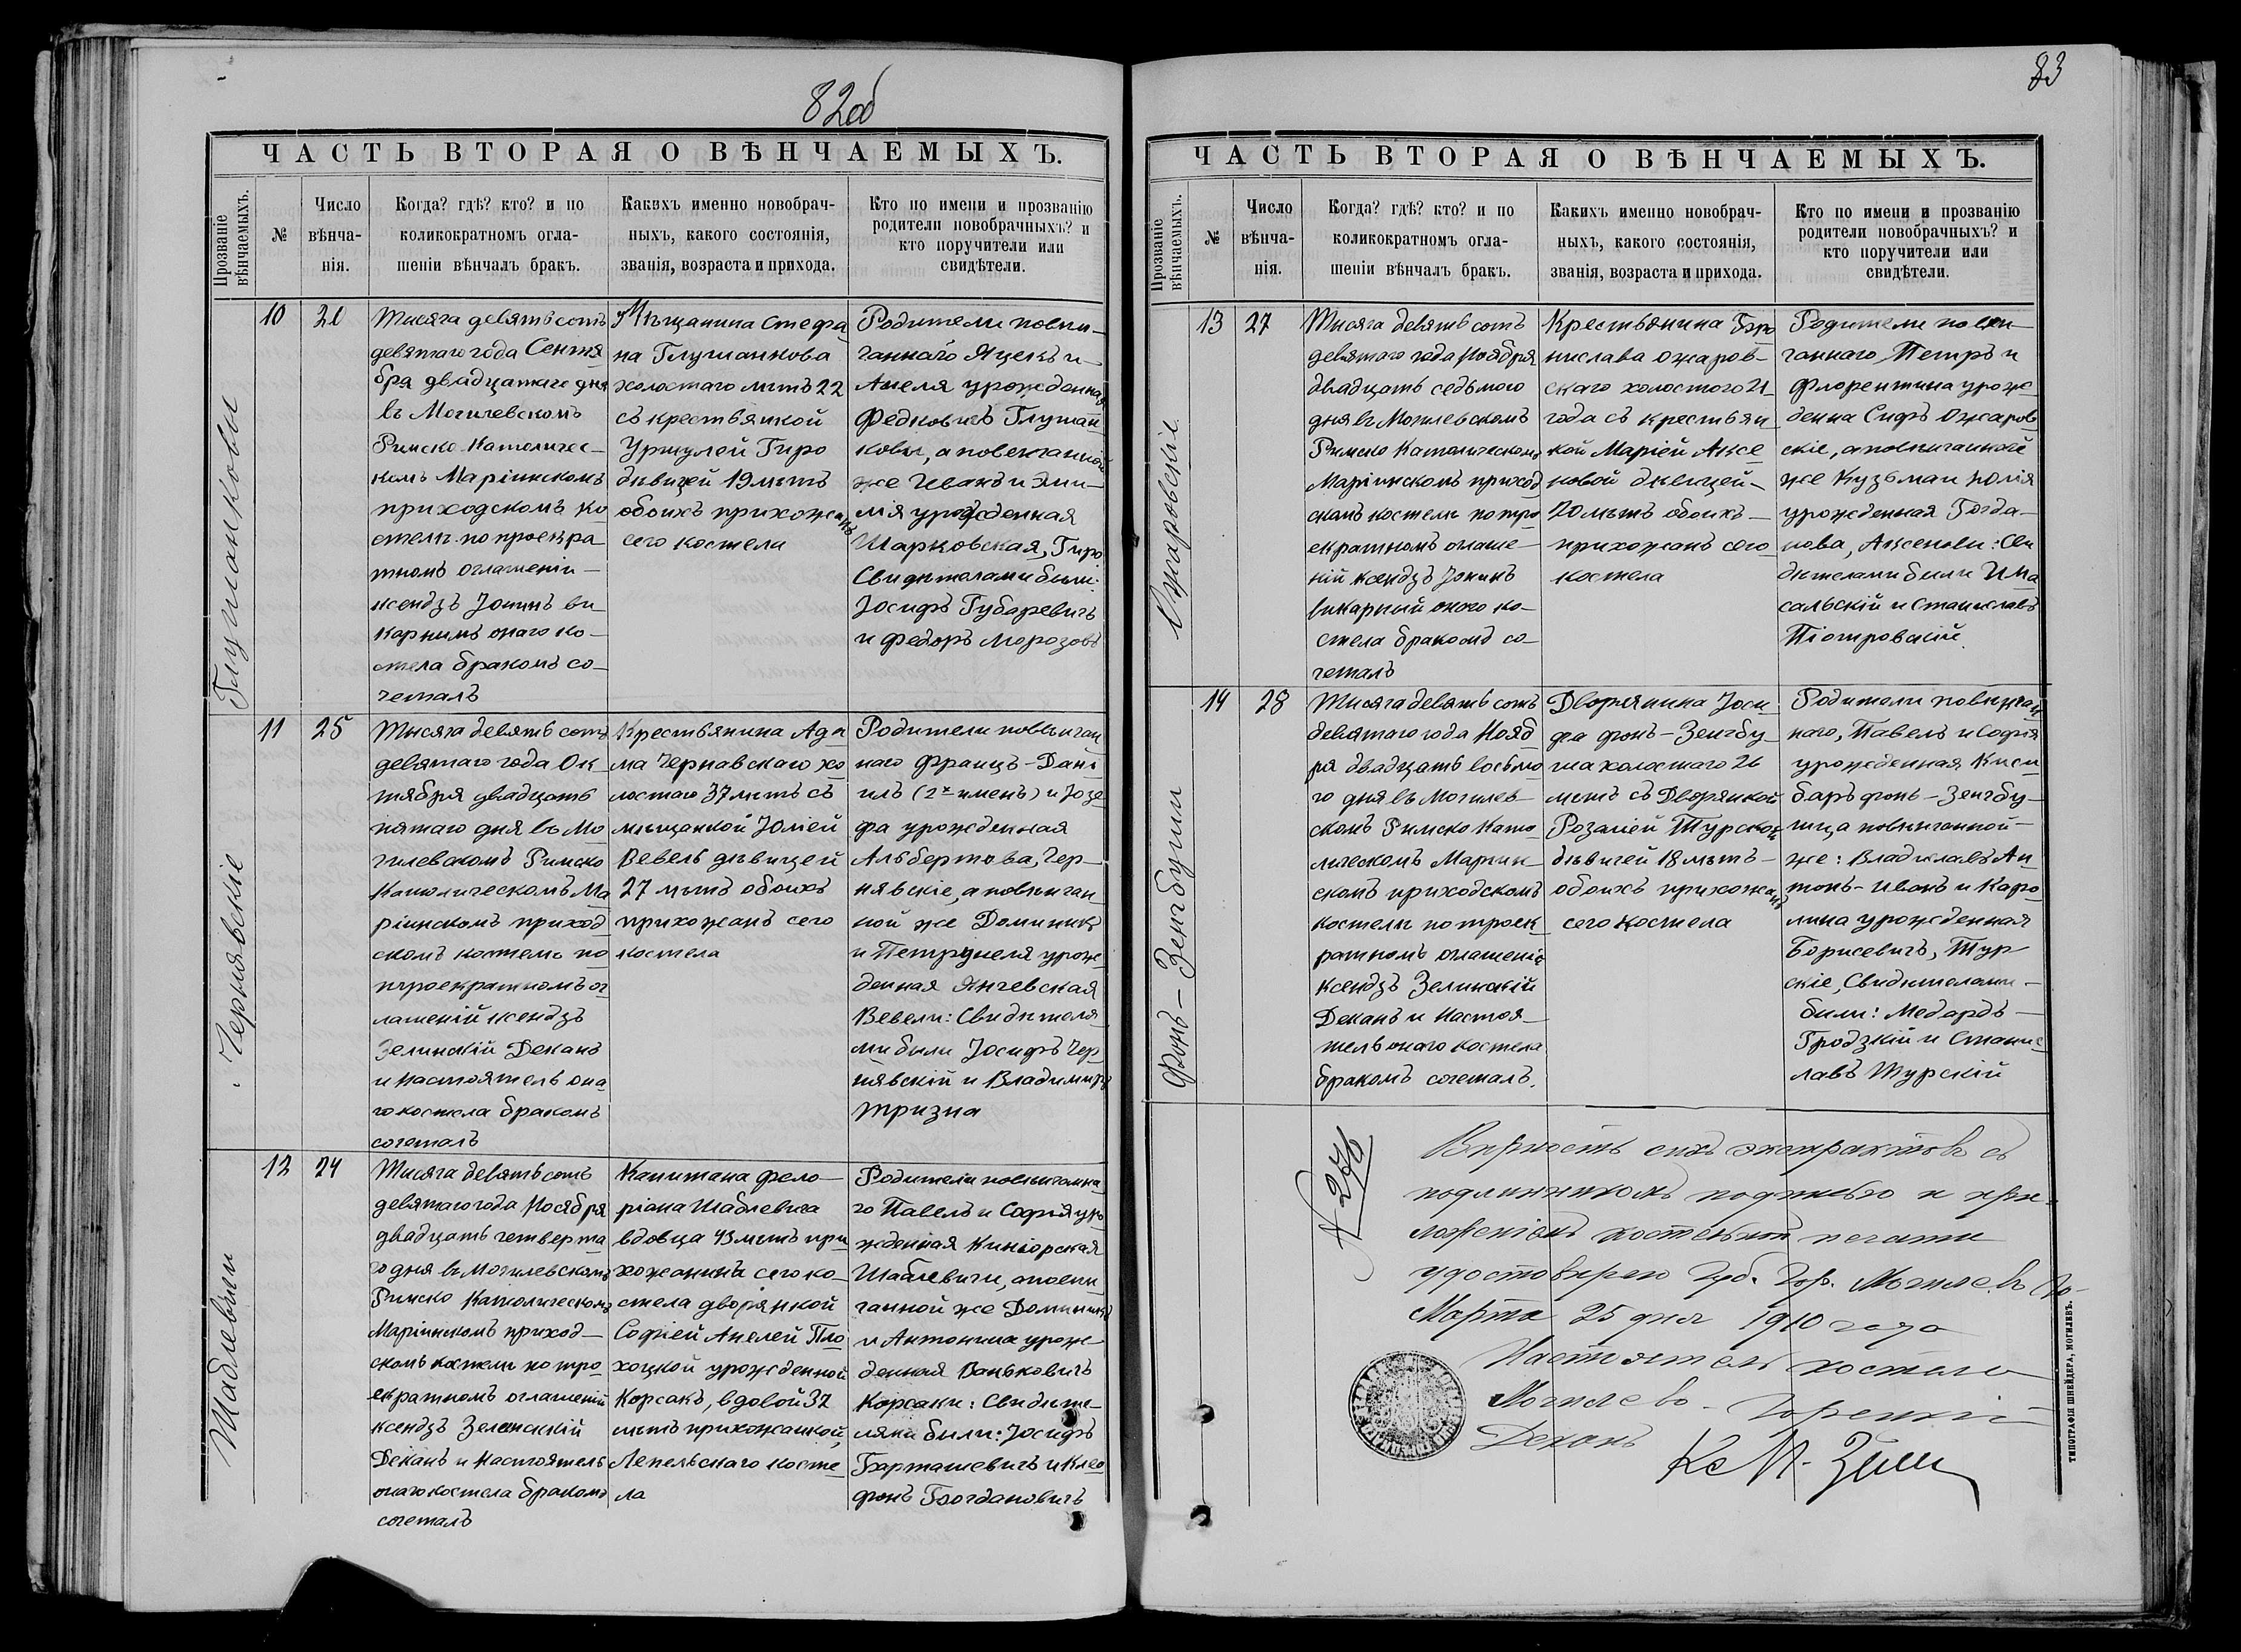 82об
ЧАСТЬ ВТОРАЯ О ВѢНЧАЕМЫХЪ.
Прозваніе вѣнчаемыхъ.
№
Число
вѣнча-
нія.
Когда? гдѣ? кто? и по
коликократномъ огла-
шеніи вѣнчалъ бракъ.
Какихъ именно новобрач-
ныхъ, какого состоянія,
званія, возраста и прихода.
Кто по имени и прозванію
родители новобрачныхъ? и
кто поручители или
свидѣтели.
Глушанковы
10
Тысяча девятьсотъ
девятаго года Сентя
бря двадцатаго дня
въ Могилевскомъ
Римско Католичес-
комъ Маріинскомъ
приходскомъ ко
стелѣ по троекра
тномъ оглашеніи
ксендзъ Іонинъ ви
карнымъ онаго ко-
стела бракомъ со-
четалъ
Мѣщанина Стефа
на Глушанкова
холостаго лѣтъ 22
съ крестьянкой
Уршулей Гиро
дѣвицей 19 лѣтъ
обоихъ прихожанъ
сего костела
Родители повѣн-
чаннаго Яцекъ и
Анеля урожденная
Федковичъ Глушан
ковы, а повенчанной
же Иванъ и Эми-
лія урожденная
Шарковская, Гиро
Свидѣтелами были:
Іосифъ Губаревичъ
и Федоръ Морозовъ
Чернявскіе
11
25
Тысяча девятьсотъ
девятаго года Ок
тября двадцать
пятаго дня въ Мо
гилевскомъ Римско
Католическомъ Ма
ріинскомъ приход
скомъ костелѣ по
троекратномъ ог
лашеній ксендзъ
Зелинскій Деканъ
и настоятель она
го костела бракомъ
сочеталъ
Крестьянина Ада
ма Чернавскаго хо
лостаго 37 лѣтъ съ
мѣщанкой Юліей
Вевель дѣвицей
27 лѣтъ обоихъ
прихожанъ сего
костела
Родители повѣнчан
наго Францъ-Дані
илъ (2х именъ) и Юзе
фа урожденная
Альбертова, Чер-
нявскіе, а повѣнчан
ной же Доминикъ
и Петрунеля урож
денная Янчевская
Вевели: Свидѣтеля
ми были Іосифъ Чер
нявскій и Владиміръ
Тризна
Шаблевичи
12
24
Тысяча девятьсотъ
девятаго года Ноября
двадцать четверта
го дня въ Могилевскомъ
Римско Католическомъ
Маріинскомъ приход-
скомъ костелѣ по тро
екратномъ оглашеній
ксендзъ Зелинскій
Деканъ и настоятель
онаго костела бракомъ
сочеталъ
Капитана Фело-
ріана Шаблевича
вдовца 43 лѣтъ при
хожанина сего ко-
стела дворянкой
Софіей Анелей Пло
хоцкой урожденной
Корсакъ, вдовой 32
лѣтъ прихожанкой,
Лепельскаго косте
ла
Родители повѣнчанна
го Павелъ и Софія уро
жденная
Шаблевичи, а повѣн
чанной же Доминикъ
и Антонина урож-
денная Ваньковичъ
Корсаки: Свидѣте-
лями были: Іосифъ
Барташевичъ и Клео
фонъ Богдановичъ
83
ЧАСТЬ ВТОРАЯ О ВѢНЧАЕМЫХЪ.
Прозваніе вѣнчаемыхъ.
№
Число
вѣнча-
нія.
Когда? гдѣ? кто? и по
коликократномъ огла-
шеніи вѣнчалъ бракъ.
Какихъ именно новобрач-
ныхъ, какого состоянія,
званія, возраста и прихода.
Кто по имени и прозванію
родители новобрачныхъ? и
кто поручители или
свидѣтели.
Ожаровскіе
13
27
Тысяча девятьсотъ
девятаго года Ноября
двадцать седьмого
дня въ Могилевскомъ
Римско Католическомъ
Маріинскомъ приход
скомъ костелѣ по тро
екратномъ оглаше-
ній ксендзъ Іонинъ
викарный оного ко-
стела бракомъ со-
четалъ
Крестьянина Бро
нислава Ожаров-
скаго холостого 21
года съ крестьян
кой Маріей Аксе
новой дѣвицей-
20 лѣтъ обоихъ-
прихожанъ сего
костела
Родители повѣн-
чаннаго Петръ и
Флорентина урож
денна Сифъ Ожаров
скіе, а повѣнчанной
же Кузьма и Юлія
урожденная Богда-
нова, Аксеновы: Сви
дѣтелами были
сальскій и Станиславъ
Піотровскій.
Фонъ-Зенгбуши
14
28
Тысяча девятьсотъ
девятаго года Нояб
ря двадцать восьмо
го дня въ Могилев-
скомъ Римско Като
лическомъ Маріин
скомъ приходскомъ
костелѣ по троек
ратномъ оглашеніе
ксендзъ Зелинскій
Деканъ и Настоя-
тель онаго костела
бракомъ сочеталъ.
Дворянина Іоси
фа фонъ-Зенгбу
ша холостаго 26
лѣтъ съ Дворянкой
Розаліей Турской
дѣвицей 18 лѣтъ-
обоихъ прихожанъ
сего костела
Родители повѣнчан
наго, Павелъ и Софія
урожденная Киси
баръ фонъ-Зенгбу-
шъ а повѣнчанной-
же: Владиславъ Ан
тонъ-Иванъ и Каро
лина урожденная
Борисевичъ, Тур
скіе, Свидѣтелами-
были: Медардъ-
Гродзкій и Станис
лавъ Турскій
№ 276
Вѣрность сихъ экстрактовъ съ
подлинникомъ подписью и при-
ложеніемъ костельной печати
удостовѣряю Губ. Гор. Могилевъ
Марта 25 дня 1910 года
Настоятель костела
Могилево-Горецкій
Деканъ
Кс
ТИПОГРАФІЯ ШНЕЙДЕРА, МОГИЛЕВЪ.